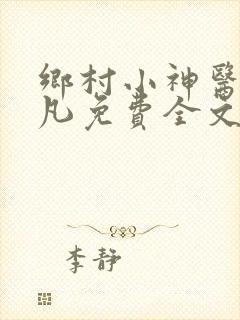 鄉村小神醫
凡免費全文
李靜